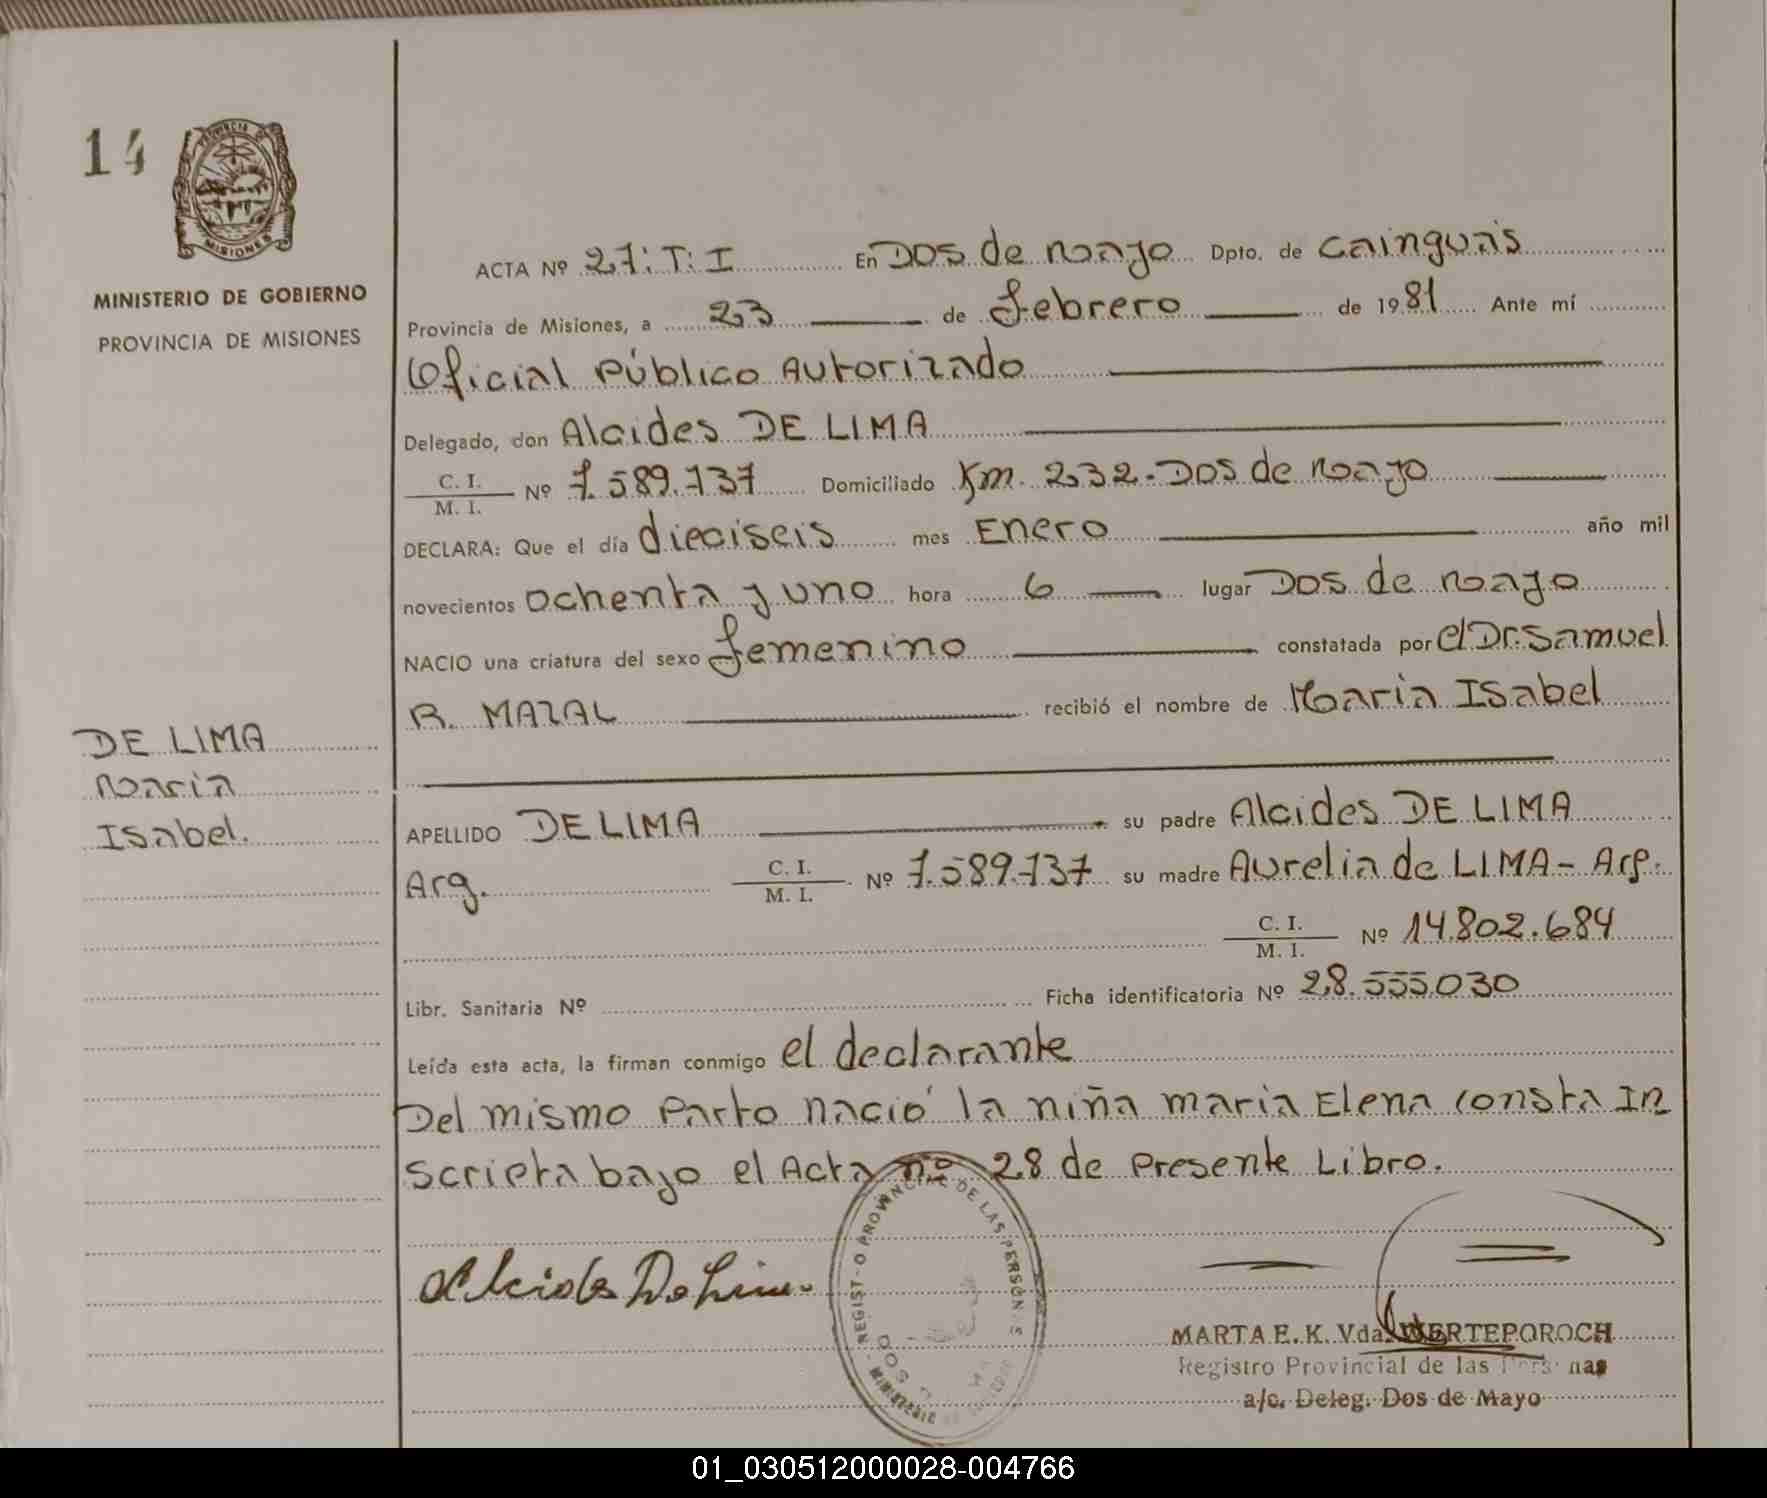 14
MINISTERIO DE GOBIERNO
PROVINCIA DE MISIONES
ACTA Nº 27: T: I En DOS de mayo Dpto. de Cainguás
Provincia de Misiones, a 23 de febrero de 1981 Ante mí
Oficial Público Autorizado
Delegado, don Alcides DE LIMA
C. I.
M. I. Nº 7.589.737 Domiciliado Km. 232-DOS de mayo
DECLARA: Que el día dieciseis mes Enero año mil
novecientos ochenta y uno hora 6 lugar DOS de mayo
NACIO una criatura del sexo femenino constatada por el Dr. Samuel
R. MAZAL recibió el nombre de Maria Isabel
DE LIMA
Maria
Isabel.
APELLIDO DE LIMA su padre Alcides DE LIMA
Arg. C. I.
M. I. Nº 7.589.737 su madre Aurelia de LIMA - Arg.
C. I.
M. I. Nº 14.802.684
Libr. Sanitaria Nº Ficha identificatoria Nº 28.555.030
Leída esta acta, la firman conmigo el declarante
Del mismo Parto nació la niña maria Elena consta In
scripta bajo el Acta nº 28 de Presente Libro.
Alcides De Lima
REGIST O PROVINCIAL DE LAS PERSON S
MARTA E. K. Vda. WERTEPOROCH
Registro Provincial de las Pers nas
a/c. Deleg. Dos de Mayo
01_030512000028-004766